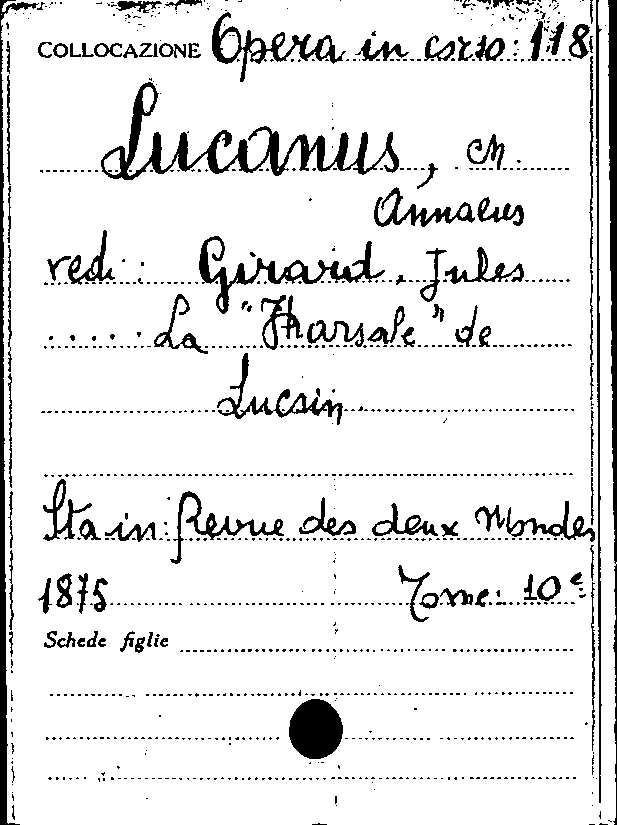 COLLOCAZIONE Opera in corso: 118
Lucanus, M.
Annaeus
vedi: Girard, Jules
..... La "Pharsale" de
Lucain.
Sta in: Revue des deux Mondes
1875 Tome: 10e
Schede figlie